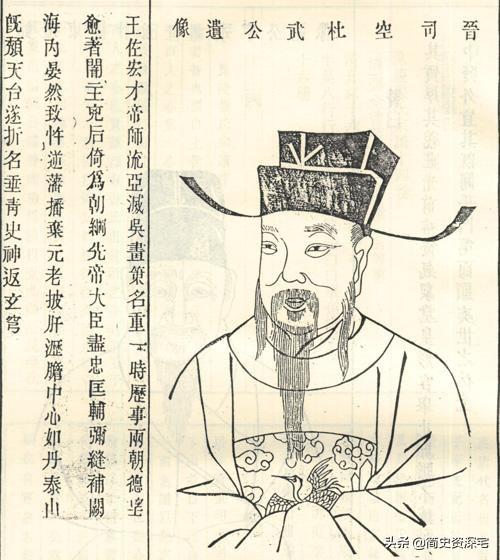 晉司空杜武公遺像
王佐宏才帝師流亞滅吳畫策名重一時歷事兩朝德望
愈著闇主兇后倚爲朝綱先帝大臣盡忠匡輔彌縫補闕
海內晏然致忤逆藩播棄元老披肝瀝膽中心如丹泰山
旣頹天台遂折名垂青史神返玄穹
头条 @简史资深宅